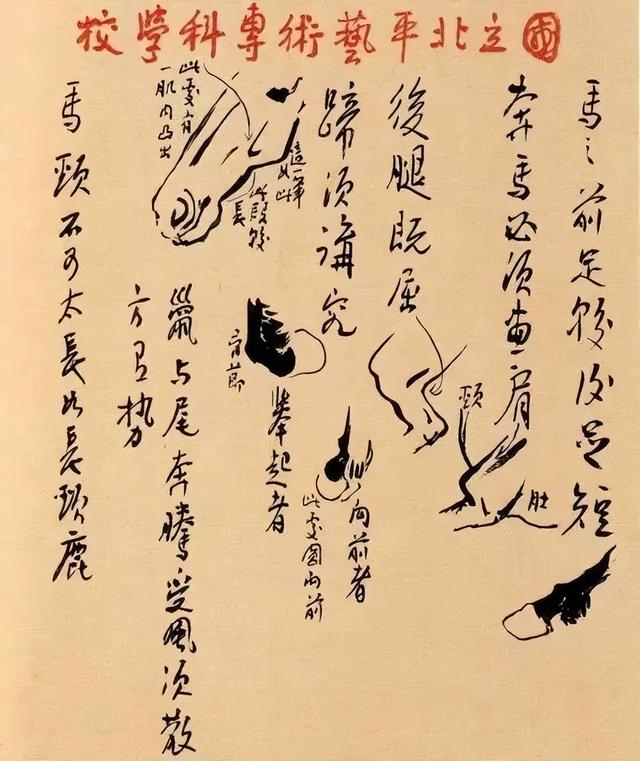 國立北平藝術專科學校
馬之前足較後足短
奔馬必須畫肩
頸
肚
後腿既屈
蹄須講究
向前者
此處圓向前
這一筆
如此
此段較
長
此處有
一肌肉凸出
有節
舉起者
鬣与尾奔騰受風須散
方有勢
馬頸不可太長如長頸鹿